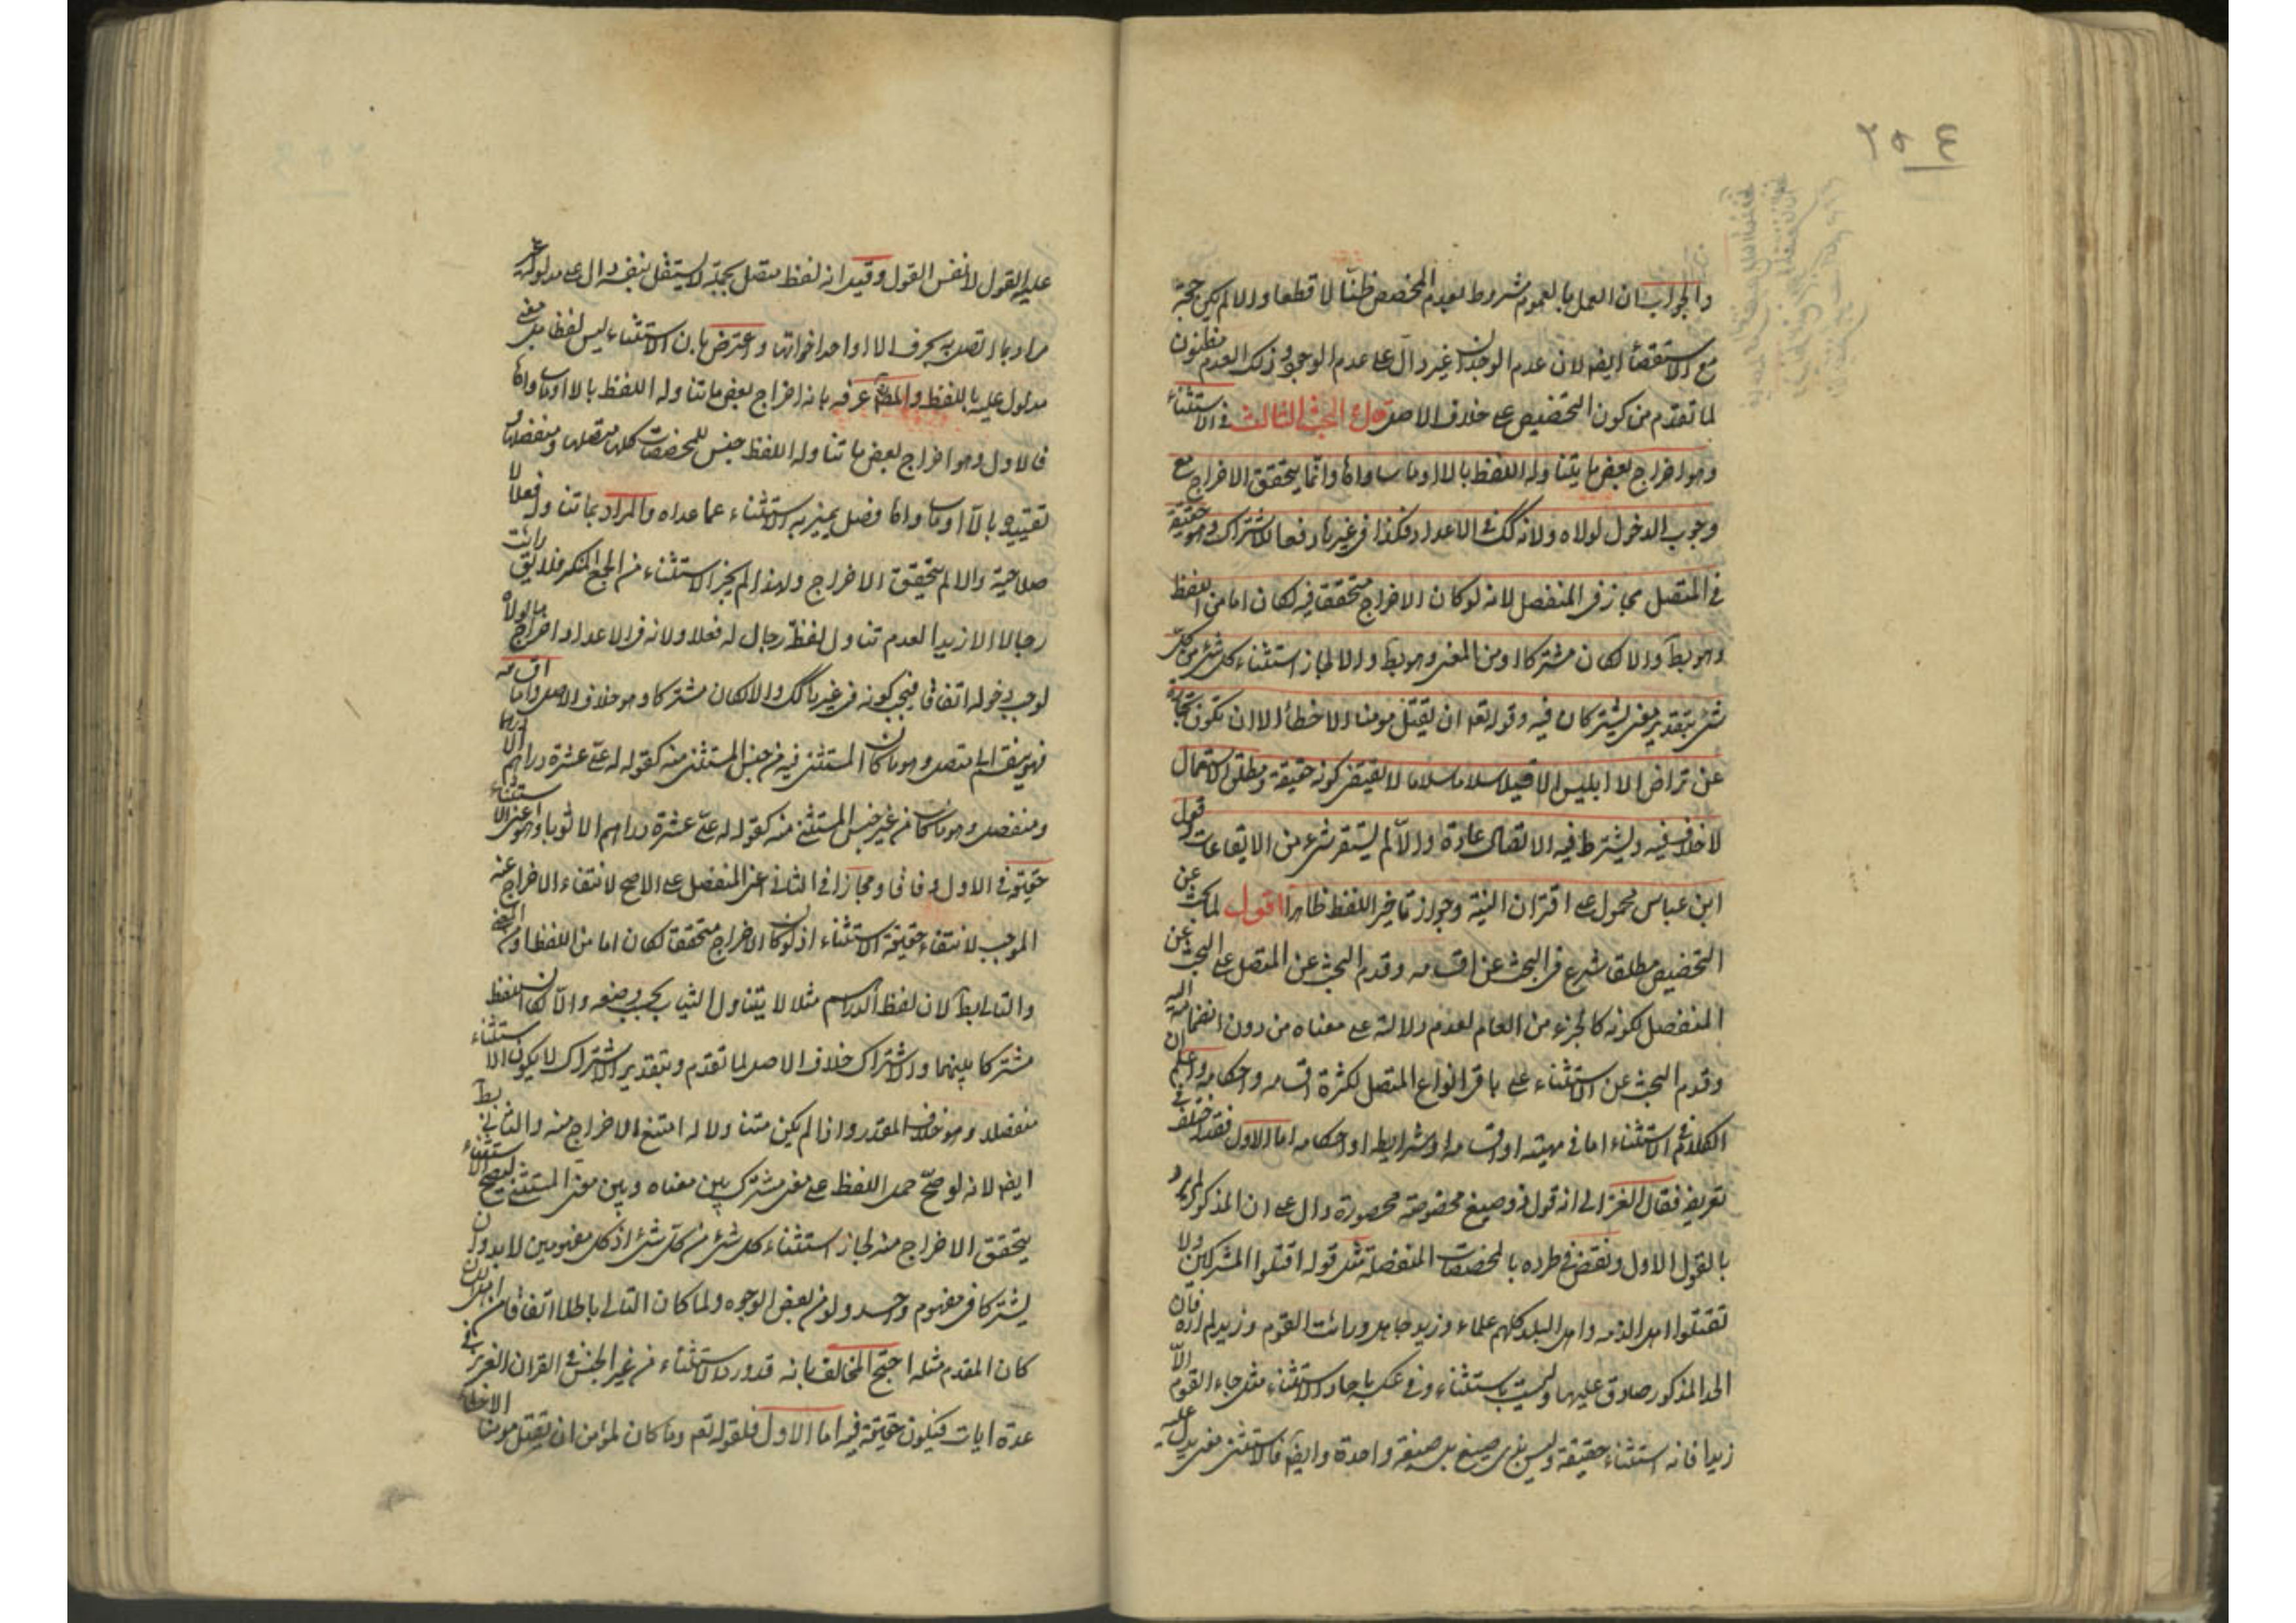 ٢٥٤
والجواب ان العمل بالعموم مشروط بعدم المخصص ظنّا لا قطعا والا لم يكن حجة
مع الاستقصاء ايضا لان عدم الوجدان غير دالّ على عدم الوجود وذلك العدم مظنون
لما تقدم من كون التخصيص على خلاف الاصل قال البحث الثالث في الاستثناء
وهو اخراج بعض ما يتناوله اللفظ بالا او ما ساواها وانما يتحقق الاخراج مع
وجوب الدخول لولاه ولانه كك في الاعداد فكذا في غيرها دفعا للاشتراك وهو حقيقة
في المتصل مجاز في المنفصل لانه لو كان الاخراج متحققا فيه لكان اما من اللفظ
وهو بط والا لكان مشتركا او من المعنى وهو بط والا لجاز استثناء كل شئ من كل
شئ بتقدير معنى يشتركان فيه وقوله تعم ان يقتل مومنا الا خطأ الا ان تكون تجارة
عن تراض الا ابليس الا قيلا سلاما سلاما لا يقتضى كونه حقيقة ومطلق الاستعمال
لا خلاف فيه ويشترط فيه الاتصال عادة والّا لم يستقر شئ من الايقاعات وقول
ابن عباس محمول على اقتران النية وجواز تاخير اللفظ ظاهرا اقول لما بحث عن
التخصيص مطلقا شرع في البحث عن اقسامه وقدم البحث عن المتصل على البحث عن
المنفصل لكونه كالجزء من العام لعدم دلالته على معناه من دون انضمامه اليه
وقدم البحث عن الاستثناء على باقى انواع المتصل لكثرة اقسامه واحكامه واعلم ان
الكلام في الاستثناء اما في مهيته او اقسامه او شرايطه او احكامه اما الاول فقد اختلف في
تعريفه فقال الغزالى انه قول ذو صيغ مخصوصة محصورة دال على ان المذكور لم يرد
بالقول الاول ونقض في طرده بالمخصصات المنفصلة مثل قوله اقتلوا المشركين ولا
تقتلوا اهل الذمه واهل البلد كلهم علماء وزيد جاهل ورائت القوم وزيد لم اره فان
الحد المذكور صادق عليها وليست باستثناء وفي عكسه باحاد الاستثناء مثل جاء القوم الّا
زيدا فانه استثناء حقيقة وليس بذى صيغ بل صيغة واحدة وايضا فالاستثناء معنى يدل عليه
عليه القول لا نفس القول وقيل انه لفظ متصل بجملة لا يستقل بنفسه دال على مدلوله غير
مراد بما اتصل به بحرف الا او احد اخواتها واعترض بان الاستثناء ليس لفظا بل معنى
مدلول عليه باللفظ والمص عرفه بانه اخراج بعض ما تناوله اللفظ بالا او ما ساواها
فالاول وهو اخراج بعض ما تناوله اللفظ جنس للمخصصات كلها متصلها ومنفصلها و
تقييده بالّا او ما ساواها فصل يميز به الاستثناء عما عداه والمراد بما تناوله فعلا لا
صلاحية والا لم يتحقق الاخراج ولهذا لم يجز الاستثناء من الجمع المنكر فلا يق رائت
رجالا الا زيدا لعدم تناول لفظ رجال له فعلا ولانه في الاعداد اخراج ما لولاه
لوجب دخوله اتفاقا فيجب كونه في غيرها كك والا لكان مشتركا وهو خلاف الاصل واما اقسامه
فهو ينقسم الى متصل وهو ما كان المستثنى فيه من جنس المستثنى منه كقوله له علىّ عشرة دراهم الا درهما
ومنفصل وهو ما كان من غير جنس المستثنى منه كقوله له علىّ عشرة دراهم الا ثوبا وهو اعنى الاستثناء
حقيقة في الاول وفاقا ومجازا في الثانى اعنى المنفصل على الاصح لانتفاء الاخراج عنه
الموجب لانتفاء حقيقة الاستثناء اذ لو كان الاخراج متحققا لكان اما من اللفظ او من المعنى
والتالى بط لان لفظ الدراهم مثلا لا يتناول الثياب بحسب وضعه والّا لكان اللفظ
مشتركا بينهما والاشتراك خلاف الاصل لما تقدم وبتقدير الاشتراك لا يكون الاستثناء
منفصلا وهو خلاف المقدر واذا لم يكن متناولا له امتنع الاخراج منه والثانى بط
ايضا لانه لو صحّ حمل اللفظ على معنى مشترك بين معناه وبين معنى المستثنى ليصح الاستثناء
يتحقق الاخراج منه لجاز استثناء كل شئ من كل شئ اذ كل مفهومين لا بد وان
يشتركا في مفهوم واحد ولو من بعض الوجوه ولما كان التالى باطلا اتفاقا
كان المقدم مثله احتج المخالف بانه قد ورد الاستثناء من غير الجنس في القران العزيز في
عدة ايات فيكون حقيقة فيه اما الاول فلقوله تعم وما كان لمؤمن ان يقتل مومنا الا خطأ